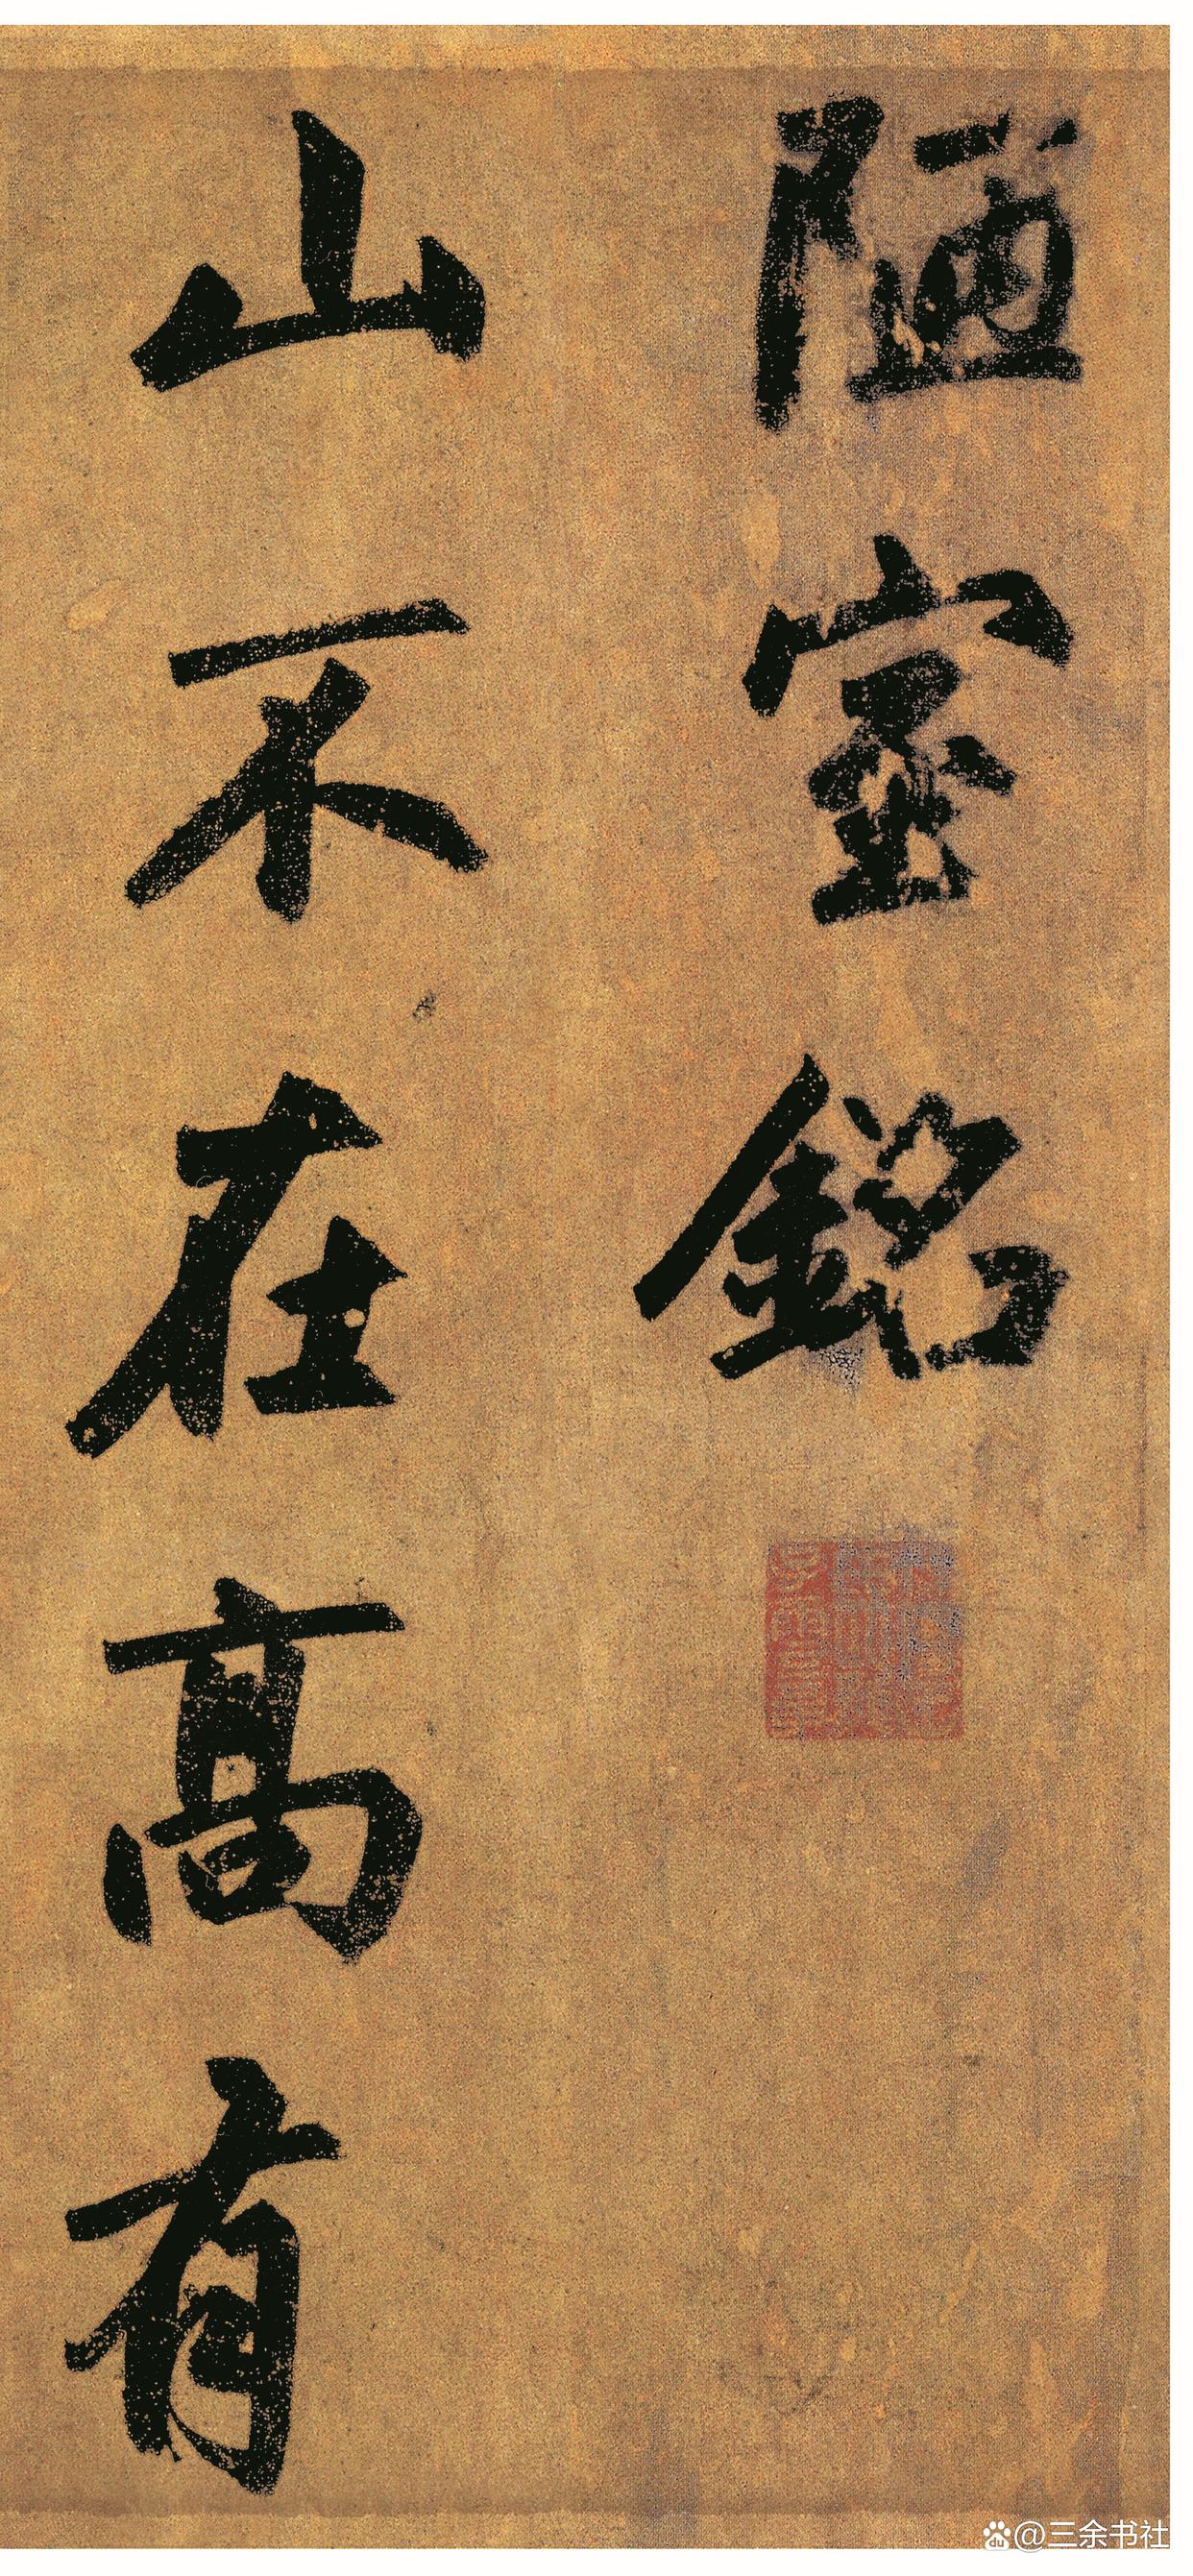 陋室銘
山不在高有
@三余书社